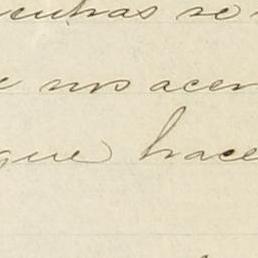 mientras se
nos acer
que hace